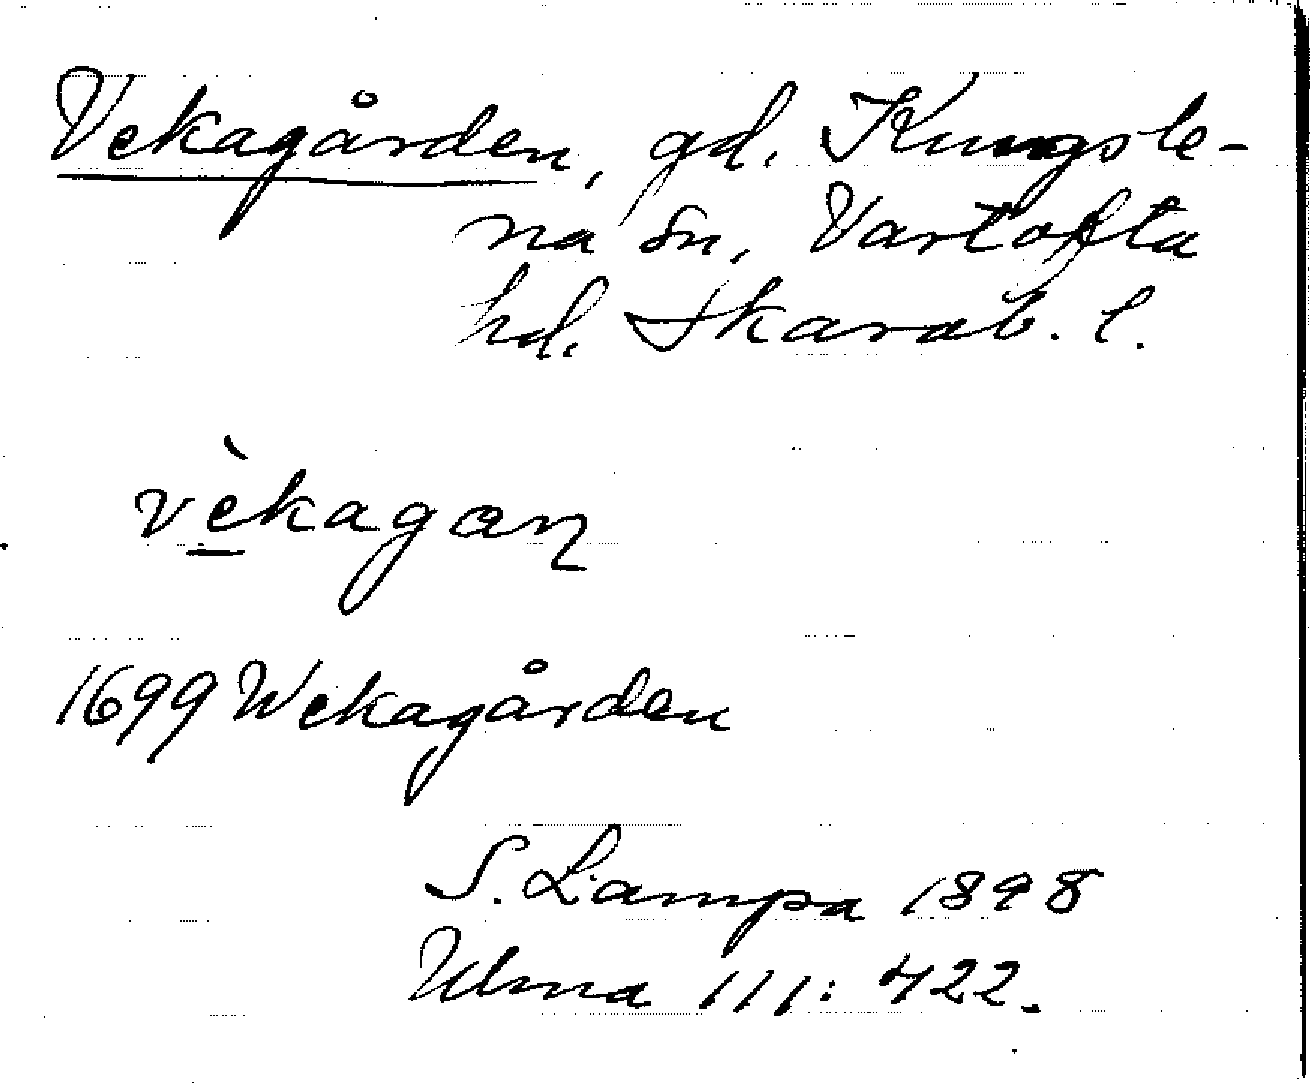 Vekagården, gd. Kungsle-
na sn, Vartofta
hd. Skarab. l.
vèkagaɳ
1699 Wekagården
S. Lampa 1898
Ulma 111: 422.